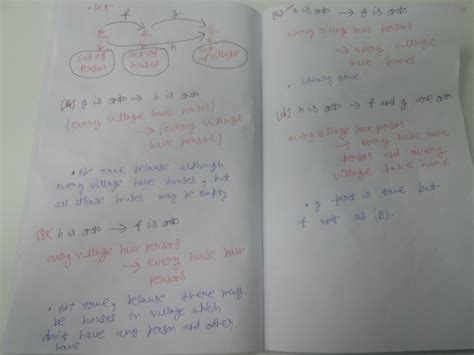 • Let
f g
A B C
h
set of Person
set of houses
set of villages
(b) g is onto → h is onto
(every village have houses)
→ (every village
have persons)
• Not true because although
every village have houses, but
all those houses may be empty
h is onto → f is onto
every village have persons
→ every house have
persons
• Not true, because there may
be houses in village which
don't have any person and other
have
(c) h is onto → g is onto
every village have persons
→ every village
have homes
• clearly true
(d) h is onto → f and g are onto
every village have persons
→ every house have
persons and every
village have home
• g part is true but
f not as (B).